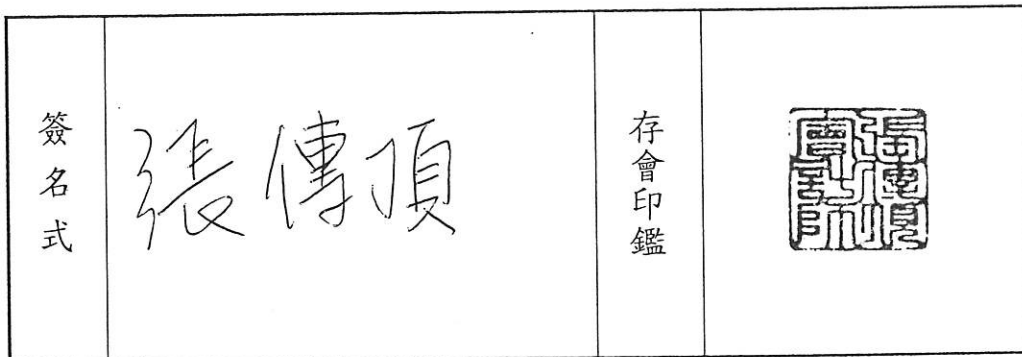 簽名式
張傳頂
存會印鑑
張傳頂會計師